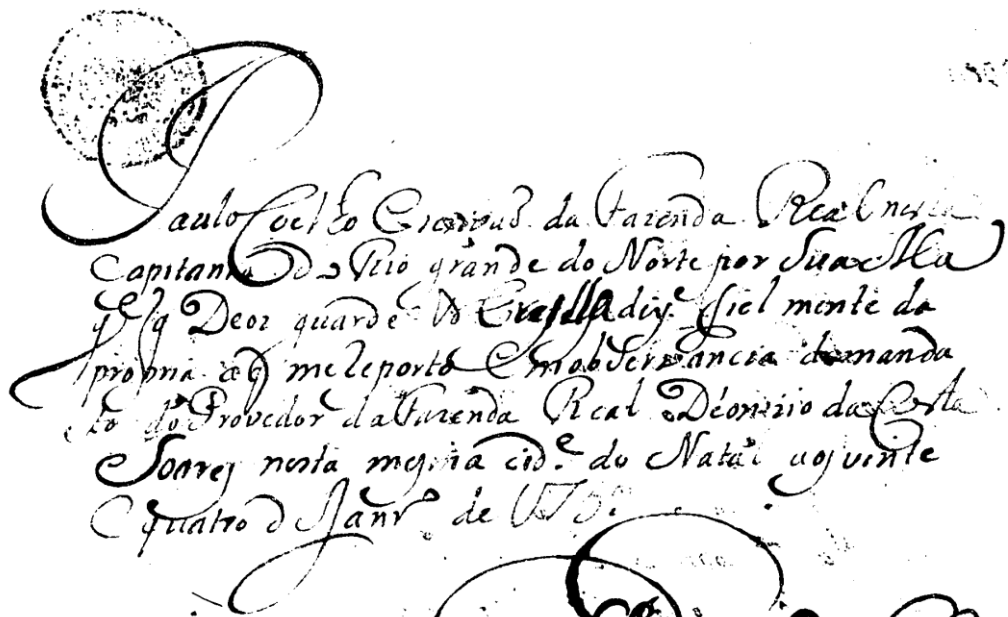 Paulo Coelho Escrivaõ da Fazenda Real nesta
Capitania do Rio grande do Norte por Sua Ma
gde q Deos guarde
fiel mente da
propria a q me reporto Em observancia do manda
to do Provedor da Fazenda Real Deonizio da Costa
Soares nesta mesma cide do Natal aos vinte
E quatro de Janro de